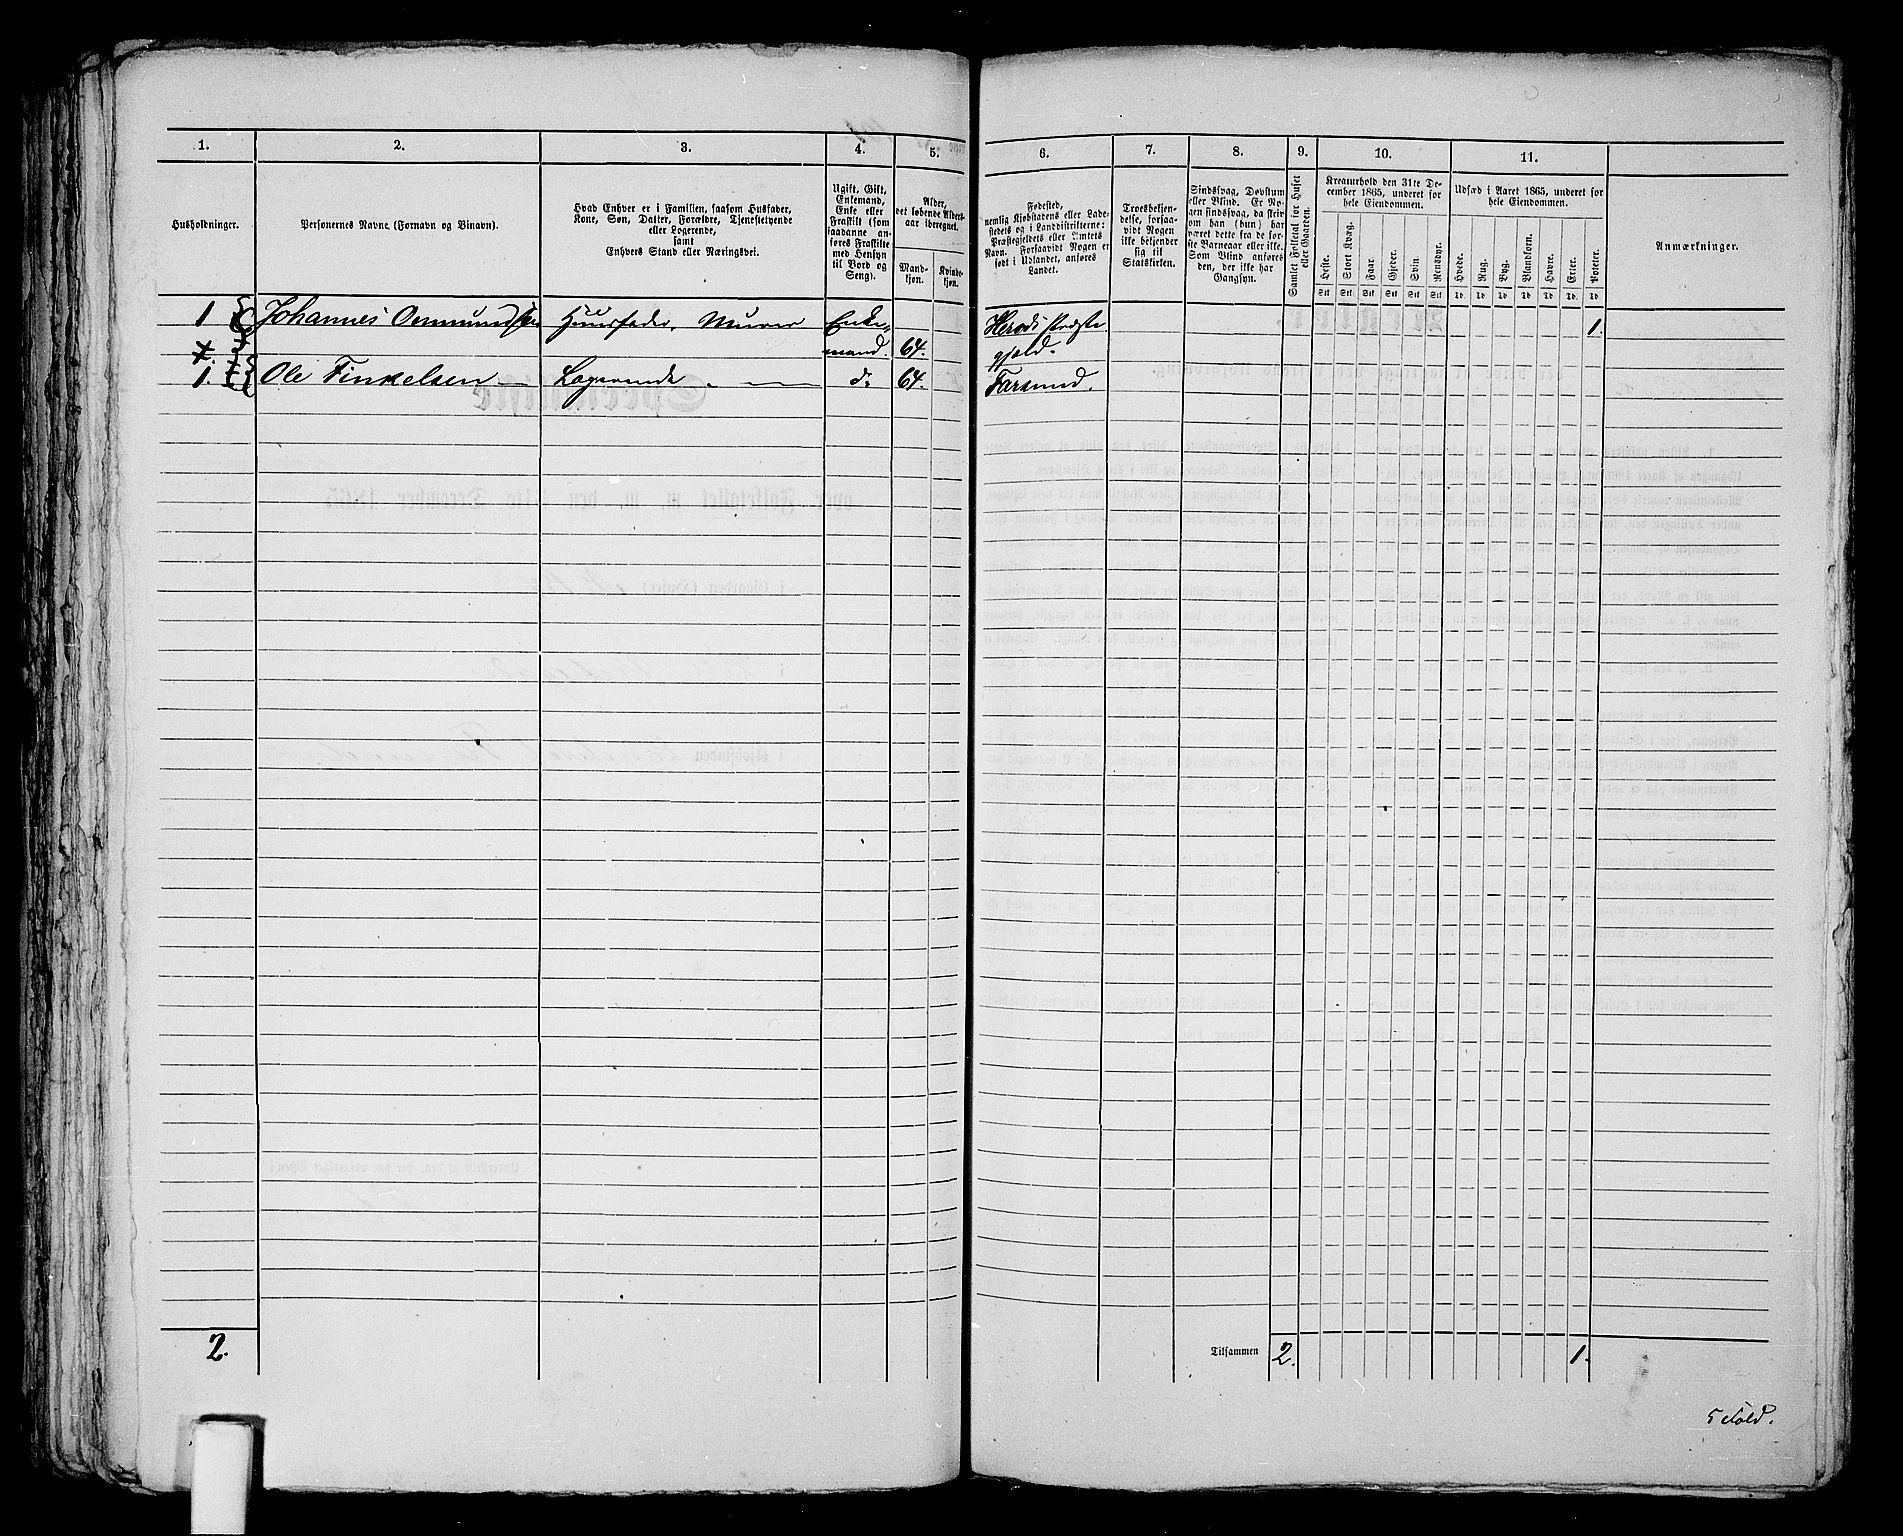 1.
2.
3.
4.
5.
6.
7.
8.
9.
10.
11.
Husholdninger.
Personernes Navne (Fornavn og Binavn).
Hvad Enhver er i Familien, saasom Husfader,
Kone, Søn, Datter, Forældre, Tjenestetyende
eller Logerende,
samt
Enhvers Stand eller Næringsvei.
Ugift, Gift,
Enkemand,
Enke eller
Fraskilt (som
saadanne an-
føres Fraskilte
med Hensyn
til Bord og
Seng).
Alder,
det løbende Alders-
aar iberegnet.
Mand-
kjøn.
Kvinde-
kjøn.
Fødested,
nemlig Kjøbstadens eller Lade-
stedets og i Landdistrikterne:
Præstegjeldets eller Amtets
Navn. Forsaavidt Nogen er
født i Udlandet, anføres
Landet.
Troesbekjen-
delse, forsaa-
vidt Nogen
ikke bekjender
sig til
Statskirken.
Sindssvag, Døvstum
eller Blind. Er No-
gen sindssvag, da skriv
om han (hun) har
været dette fra de før-
ste Barneaar eller ikke.
Som Blind anføres
den, der ikke har
Gangsyn.
Samlet Folketal for Huset
eller Gaarden.
Kreaturhold den 31te De-
cember 1865, underet for
hele Eiendommen.
Heste.
Stort Kvæg.
Faar
Gjeder.
Svin.
Rensdyr.
Stk Stk Stk Stk Stk Stk
Udsæd i Aaret 1865, underet for
hele Eiendommen.
Hvede.
Rug.
Byg.
Blandkorn.
Havre.
Erter.
Poteter.
Td. Td Td Td Td Td. Td
Anmærkninger.
1 Johannes Husfader, Murer Enke- Præste- 1.
mand. 64. gjæld.
1. Ole Finkelsen — Logerende. — do 64. Farsund.
2.
Tilsammen 2. 1.
5 Fold.